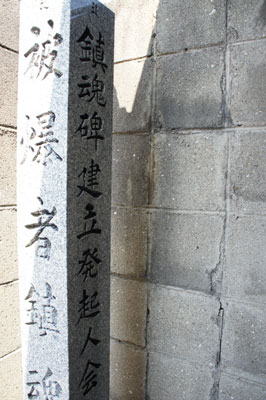 鎮魂碑建立発起人会
被爆者鎮魂